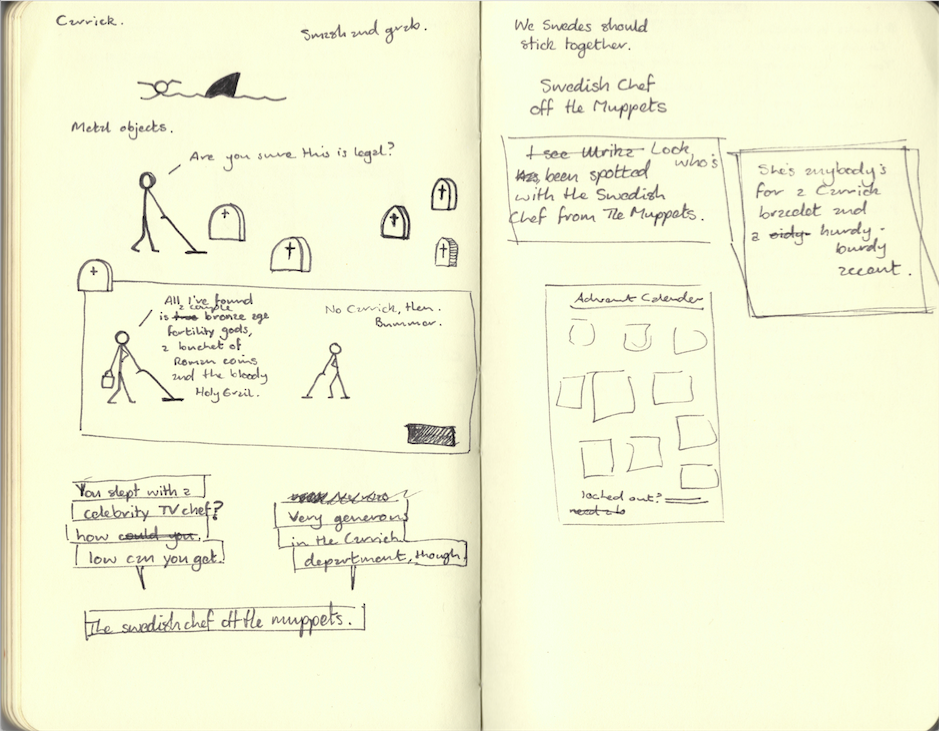 Carrick.
Smash and grab.
Metal objects.
Are you sure this is legal?
All I've found
a couple
is bronze age
fertility gods,
a bucket of
Roman coins
and the bloody
Holy Grail.
No Carrick, then.
Bummer.
You slept with a
celebrity TV chef?
how could you.
low can you get.
Very generous
in the Carrick
department, though.
The swedish chef off the muppets.
We Swedes should
stick together.
Swedish Chef
off the Muppets
I see Ulrika Look
who's
Has been spotted
with the Swedish
Chef from The Muppets.
She's anybody's
for a Carrick
bracelet and
a hurdy-
burdy
accent.
Advent Calender
locked out?
need a